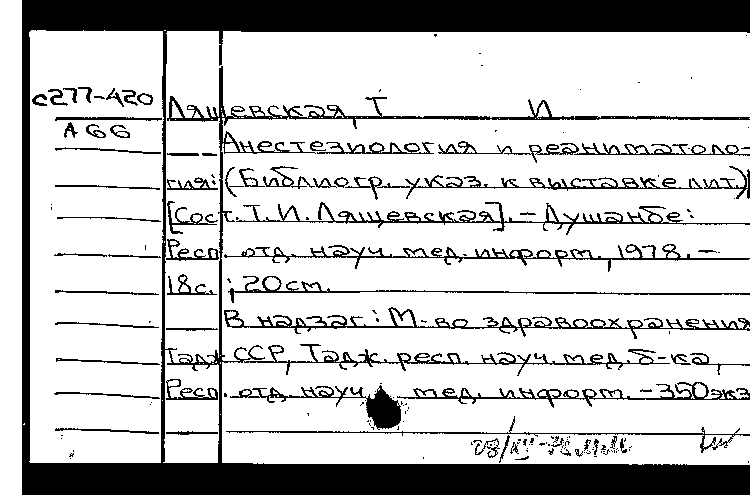 с277-420 Лящевская, Т И
А 66 Анестезиология и реаниматоло-
гия: (Библиогр. указ. к выставке лит.)
[Сост. Т. И. Лящевская]. – Душанбе:
Респ. отд. науч. мед. информ., 1978. –
18с. ; 20см.
В надзаг.: М-во здравоохранения
Тадж ССР, Тадж. респ. науч. мед. б-ка,
Респ. отд. науч. мед. информ. – 350экз